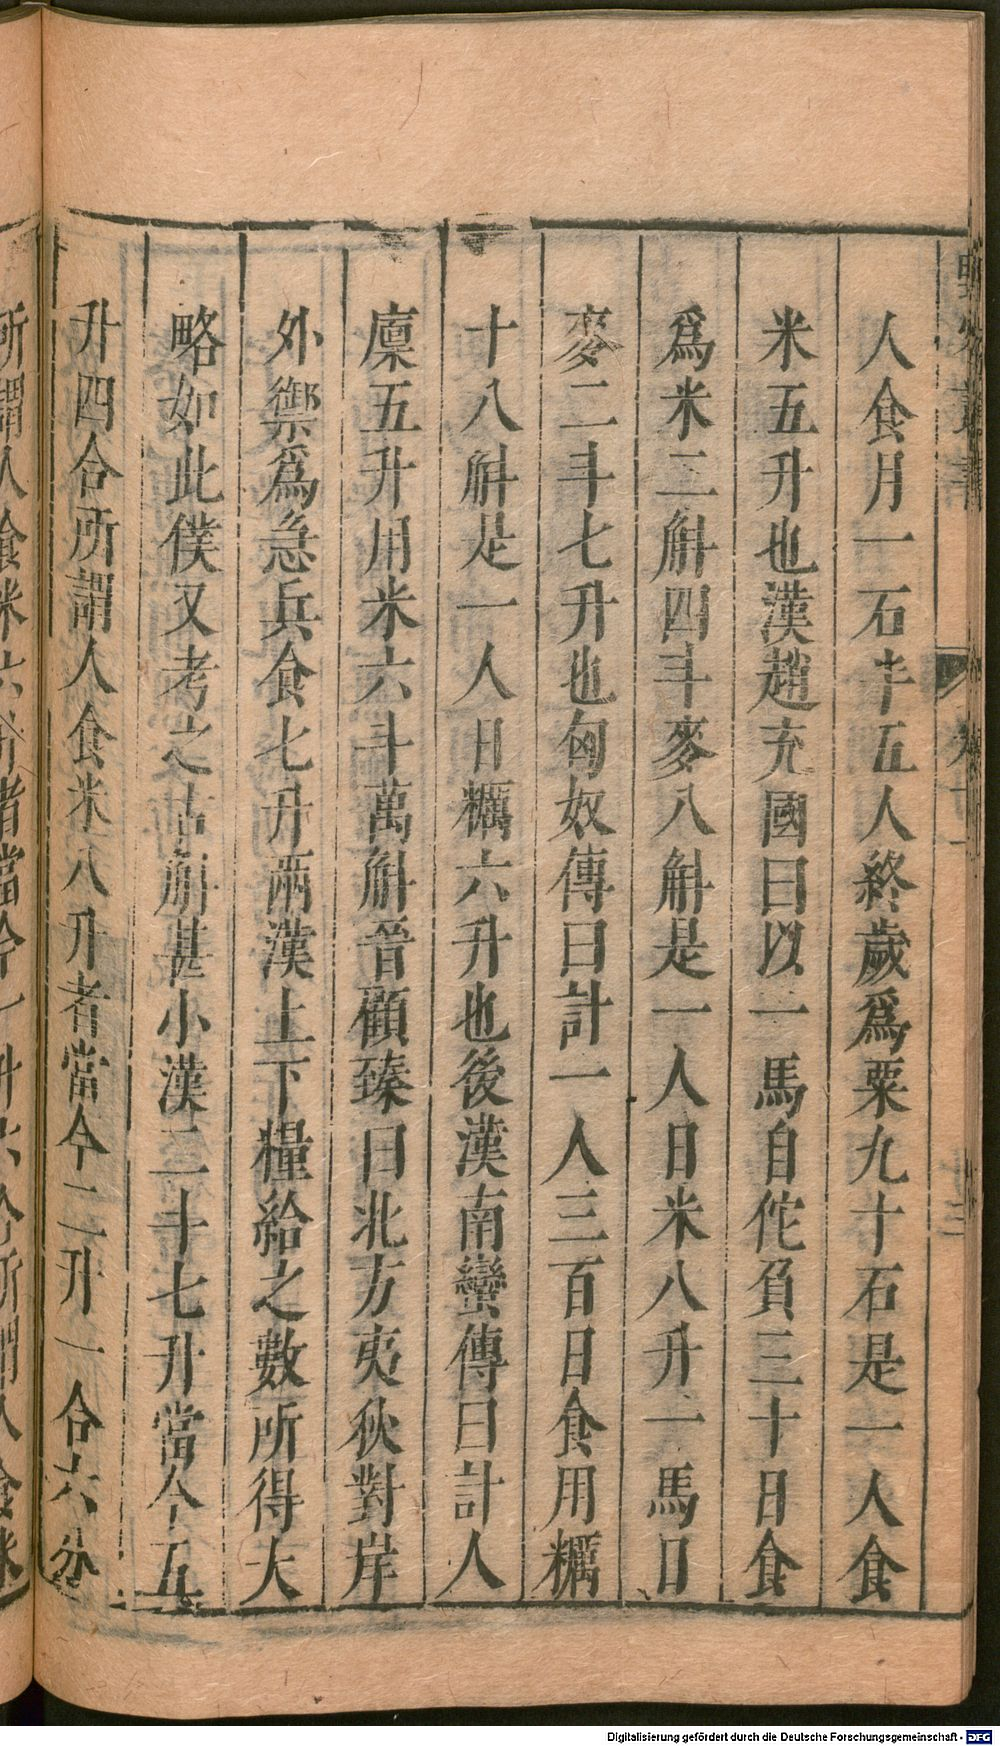 人食月一石半五人終歲爲粟九十石是一人食
米五升也漢趙充國曰以一馬自佗負三十日食
爲米二斛四斗麥八斛是一人日米八升一馬日
麥二斗七升也匈奴傳曰計一人三百日食用糲
十八斛是一人日糲六升也後漢南蠻傳曰計人
廩五升用米六斗萬斛晉顧臻曰北方夷狄對岸
外禦爲急兵食七升兩漢上下糧給之數所得大
略如此僕又考之古斛甚小漢二十七升當今五
升四合所謂人食米八升者當今二升一合六分
所謂人飡米六升者當今一升六合所謂人食米
Digitalisierung gefördert durch die Deutsche Forschungsgemeinschaft - DFG